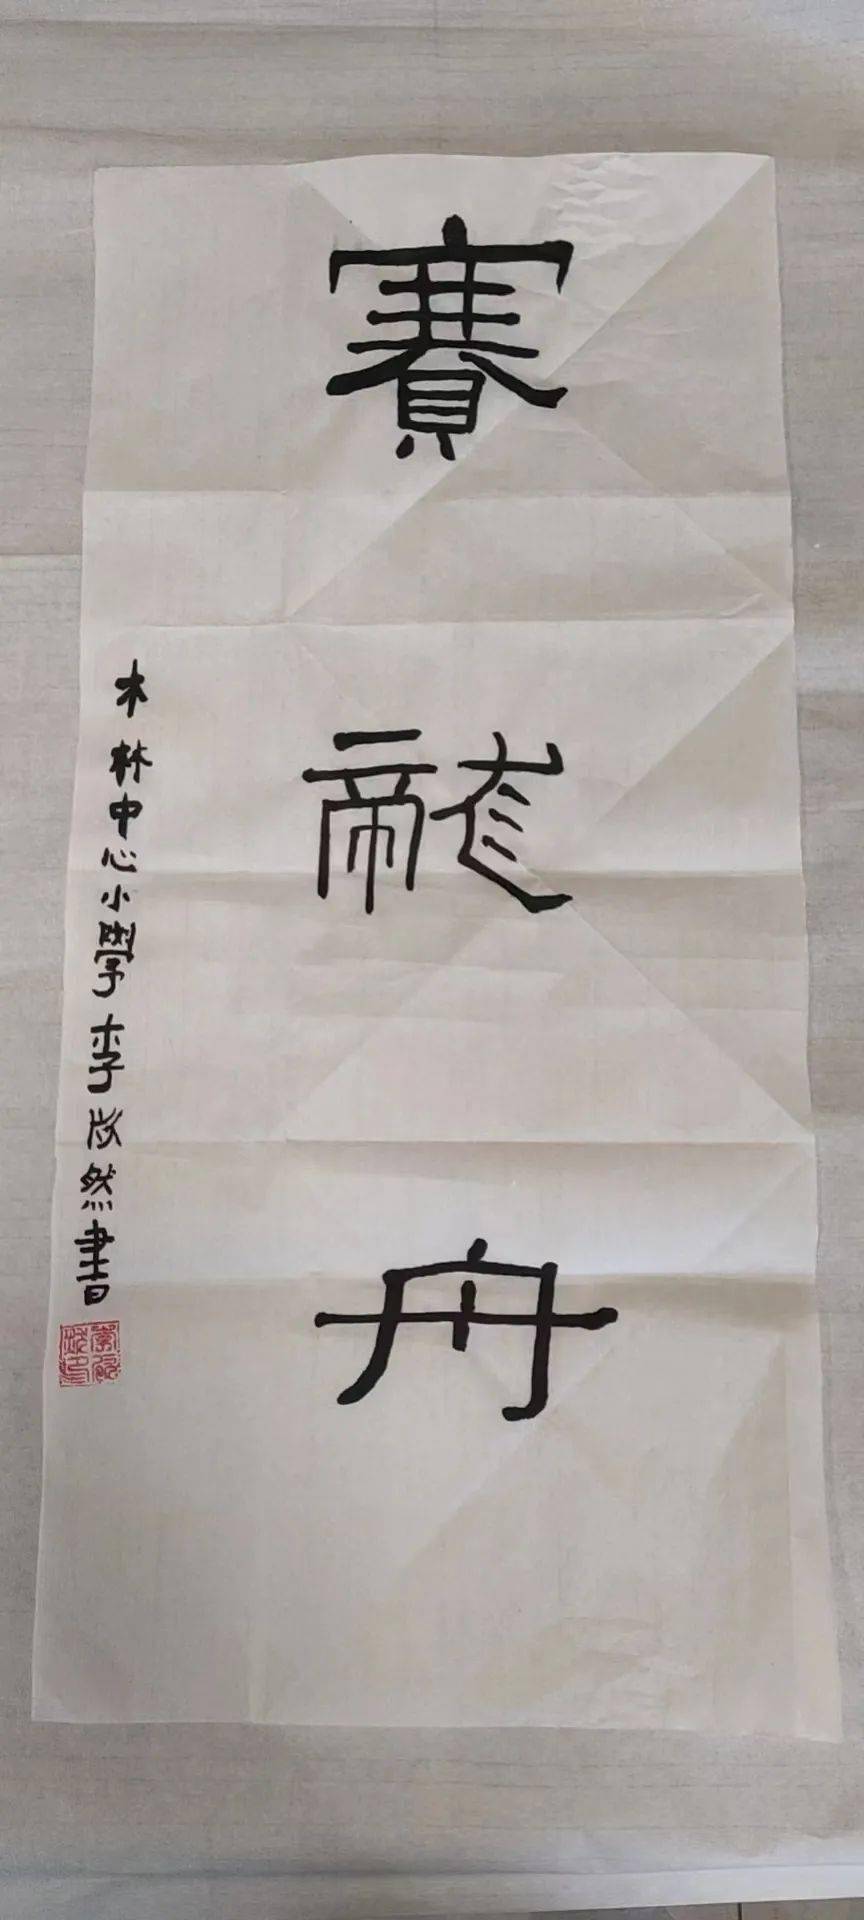 賽龍舟
木林中心小學李欣然書